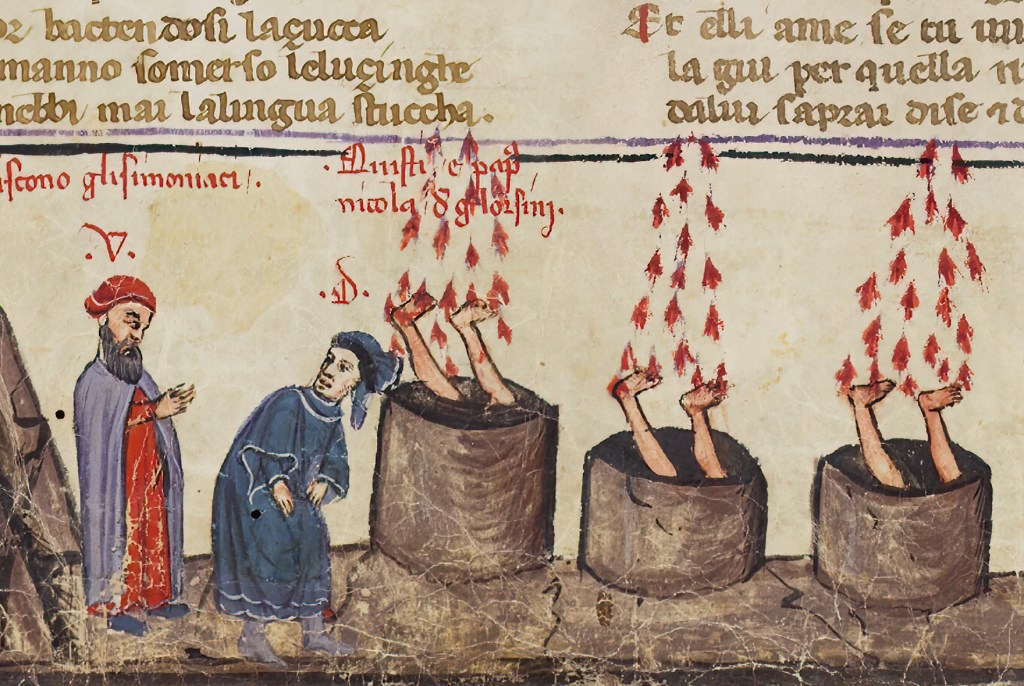 bacten dosi laçucca
manno somerso lelucinghe
mai lalingua stuccha.
Et elli ame se tu
la giu per quella
di lui saprai di se
glisimoniaci.
Quisti e papa
nicola d gliorsini.
.V.
.D.